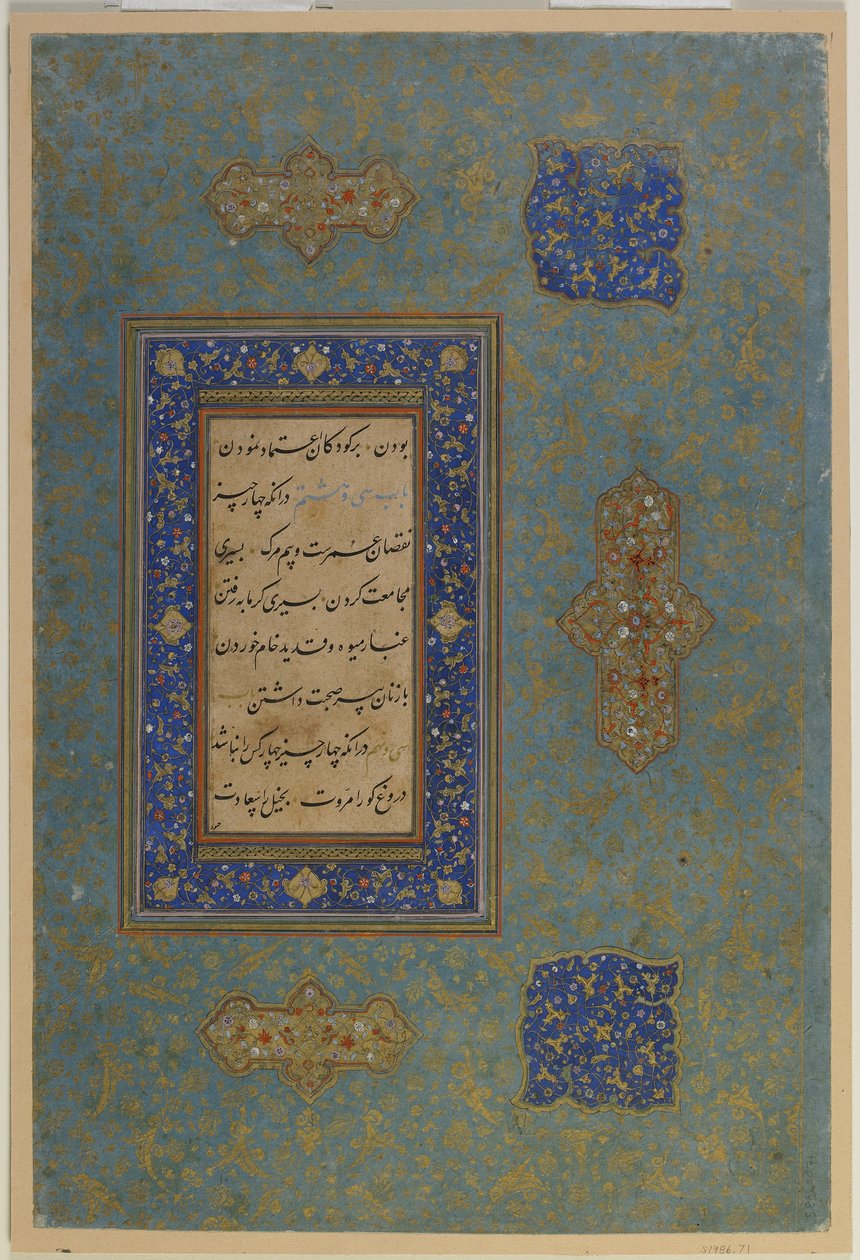 بودن بر کودکان اعتماد نمودن
باب سی و هشتم در انکه چهار چیز
نقصان عمرست و بیم مرک بسیری
مجامعت کردن بسیری کرمابه رفتن
میوه و قدید خام خوردن
با زنان پیر صحبت داشتن باب
سی و نهم در انکه چهار چیز چهار کس را نباشد
دروغ کو را مروت بخیل را
S1986.71